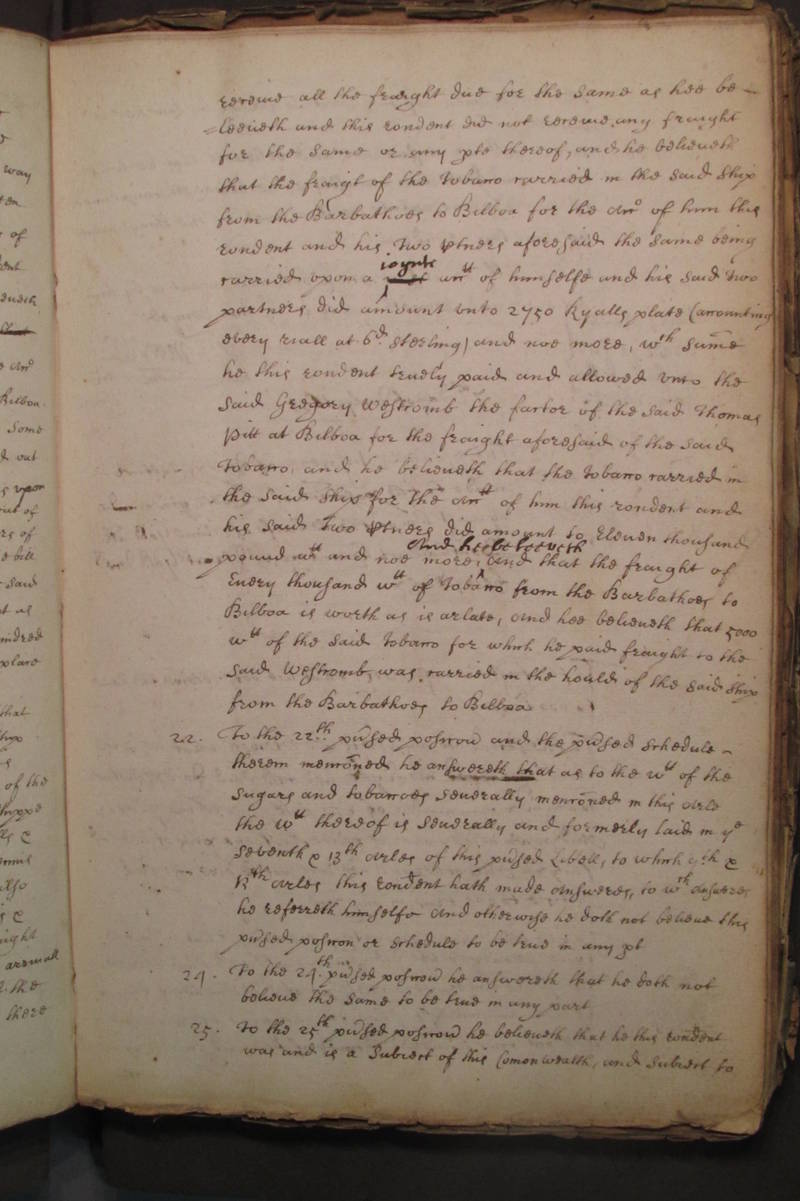 receive all the fraight due for the same as hee be-
=leeueth and this rondent did not receive any fraight
for the same or any pte thereof, and he beleeueth
that the fraigt of the Tobacco carried in the said ship
from the Barbathoes to Bilboa for the accot of him this
rondent and his two ptners aforesaid the same being
ioynte
carried vpon a acctt of himselfe and his said two
partners did amount vnto 2750 Ryalls plate (accounting
every riall at 6d sterling) and noe more, wch summe
he this rondent truely paid and allowed vnto the
said Gregory Westromb the factor of the said Thomas
Pitt at Bilboa for the fraight aforesaid of the said
Tobacco and he beleeueth that the Tobacco carried in
the said ship for the acctt of him this rondent and
his said two ptners did amount to Eleven thousand
And hee beleeveth
pound wtt and noe more, and that the fraight of
Euery thousand wtt of Tobacco from the Barbathoes to
Bilboa is worth as is arlate, and hee beleeueth that 5000
wtt of the said Tobacco for which he paid fraight to the
said Westromb was carried in the hould of the said ship
from the Barbathoes to Bilboa
22. To the 22th pred posicon and the pred schedule
therein menconed he answereth that as to the wtt of the
Sugars and tobaccoes seuerally menconed in this arle
the wtt thereof is seuerally and formerly laid in ye
seventh & 13th arles of this pred Libell, to which 7th &
13th arles this rondent hath made answeres, to wch answeres
he referreth himselfe And otherwise he doth not beleeue this
pred posicon or schedule to be true in any pt
24. To the 24th pred posicon he answereth that he doth not
beleeue the same to be true in any part
25. To the 25th pred posicon he beleeueth that he this rondent
was and is a Subiect of this Comonwealth, and subiect to
way
of
Bilboa
Some
out
vpon
said
place
that
of the
Also
the
there